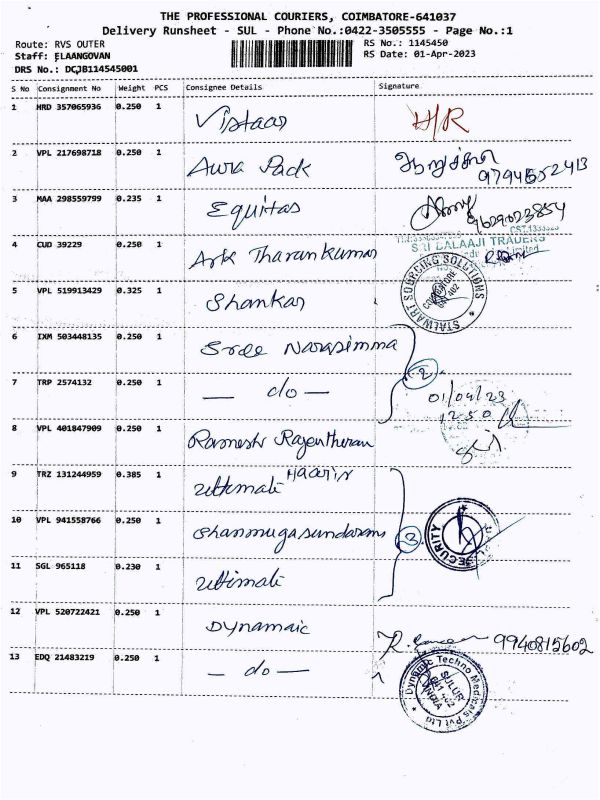 THE PROFESSIONAL COURIERS, COIMBATORE-641037
Delivery Runsheet - SUL - Phone No.:0422-3505555 - Page No.:1
Route: RVS OUTER
RS No.: 1145450
Staff: ELAANGOVAN
RS Date: 01-Apr-2023
DRS No.: DCJB114545001
S No Consignment No Weight PCS Consignee Details Signature
1 HRD 357065936 0.250 1 Vistaar H/R
2 VPL 217698718 0.250 1 Aura Pack
3 MAA 298559799 0.235 1 Equitas 9629023854
SRI BALAAJI TRADERS
4 CUD 39229 0.250 1 Ark Tharankumar
STALWART SOURCING SOLUTIONS
COIMBATORE
641 402
5 VPL 519913429 0.325 1 Shankar
6 IXM 503448135 0.250 1 Sree Narasimma
2
7 TRP 2574132 0.250 1 — do — 01/04/23
12 50
8 VPL 401847909 0.250 1 Ramesh Rajenthiran
9 TRZ 131244959 0.385 1 Ultimate
10 VPL 941558766 0.250 1 Shanmugasundaram 3
SECURITY
11 SGL 965118 0.230 1 Ultimate
12 VPL 520722421 0.250 1 Dynamaic 9940815602
13 EDQ 21483219 0.250 1 — do —
Dynamic Techno Medicals Pvt Ltd
SULUR
641 402
INDIA